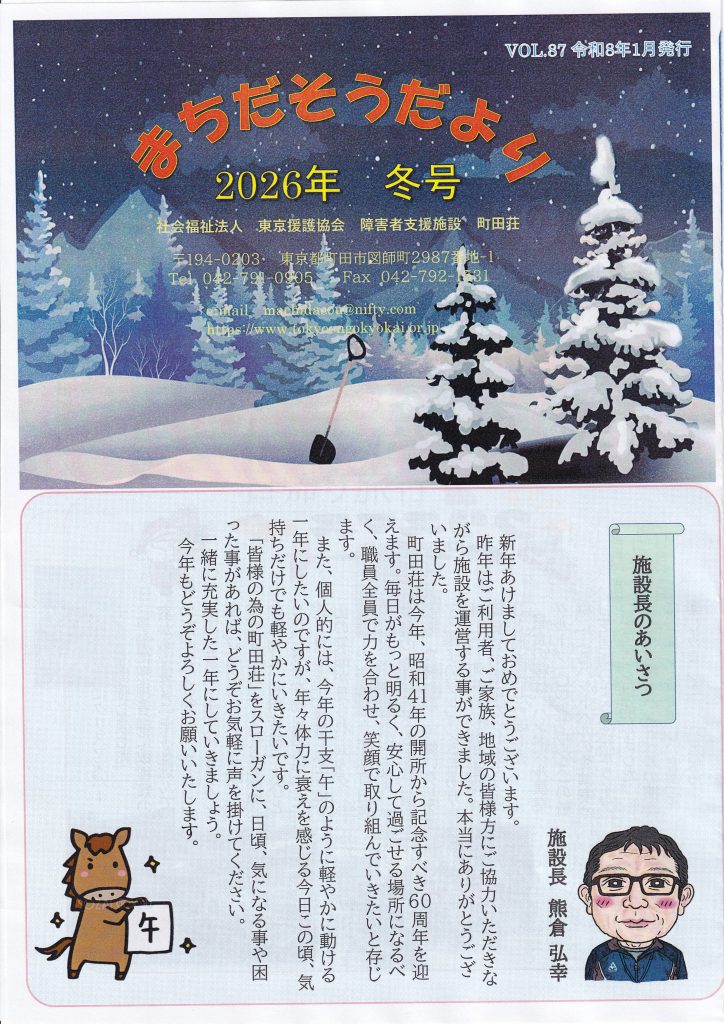 VOL.87 令和8年1月発行
まちだそうだより
2026年 冬号
社会福祉法人 東京援護協会 障害者支援施設 町田荘
〒194-0203・ 東京都町田市図師町2987番地-1
Tel 042-791-0905 Fax 042-792-1331
e-mail machidasou@nifty.com
https://www.tokyoengokyokai.or.jp
施設長のあいさつ
施設長 熊倉 弘幸
新年あけましておめでとうございます。
昨年はご利用者、ご家族、地域の皆様方にご協力いただきな
がら施設を運営する事ができました。本当にありがとうござ
いました。
町田荘は今年、昭和41年の開所から記念すべき60周年を迎
えます。毎日がもっと明るく、安心して過ごせる場所になるべ
く、職員全員で力を合わせ、笑顔で取り組んでいきたいと存じ
ます。
また、個人的には、今年の干支「午」のように軽やかに動ける
一年にしたいのですが、年々体力に衰えを感じる今日この頃、気
持ちだけでも軽やかにいきたいです。
「皆様の為の町田荘」をスローガンに、日頃、気になる事や困
った事があれば、どうぞお気軽に声を掛けてください。
一緒に充実した一年にしていきましょう。
今年もどうぞよろしくお願いいたします。
午